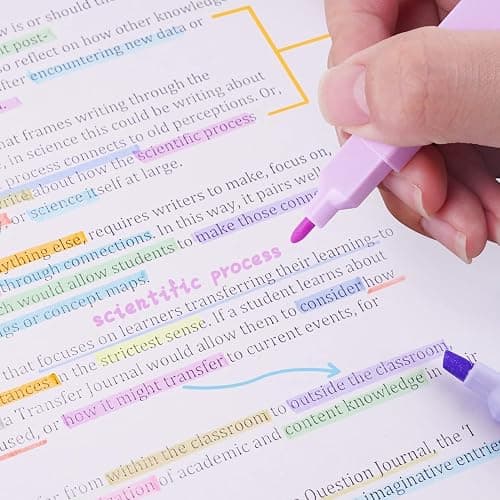 w is or should the
nt post-
so reflect on how other knowledge
after encountering new data or
that frames writing through the
in science this could be writing about
process connects to old perceptions. Or,
write about how the scientific process
or science itself at large.
anything else, requires writers to make, focus on,
through connections. In this way, it pairs well
would allow students to make those
or concept maps.
scientific process
that focuses on learners transferring their learning to
in the strictest sense. If a student learns about
a Transfer Journal would allow them to consider how
used, or how it might transfer to current events, for
outside the classroom,
far from within the classroom to
of academic and content knowledge in
Question Journal, the
imaginative entries